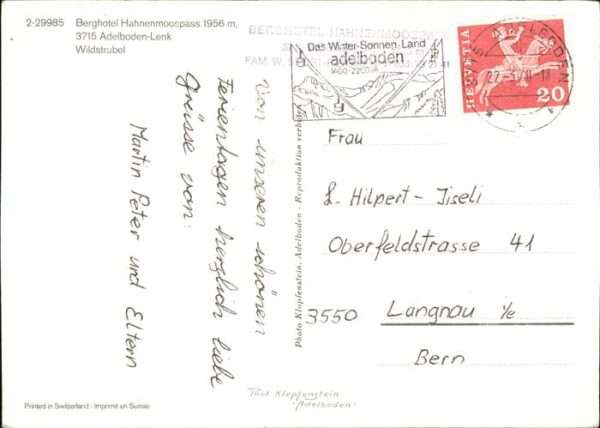 2-29985 Berghotel Hahnenmoospass 1956 m,
3715 Adelboden-Lenk
Wildstrubel
BERGHOTEL HAHNENMOOSPASS
FAM. W.
Das Winter-Sonnen-Land
adelboden
1400-2200 m
HELVETIA
20
Von unseren schönen
Ferientagen herzlich liebe
Grüsse von:
Martin Peter und Eltern
Frau
L. Hilpert-Jseli
Oberfeldstrasse 41
3550 Langnau i/e
Bern
Photo Klopfenstein, Adelboden - Reproduktion verboten
Phot Klopfenstein
"Adelboden"
Printed in Switzerland - Imprimé en Suisse